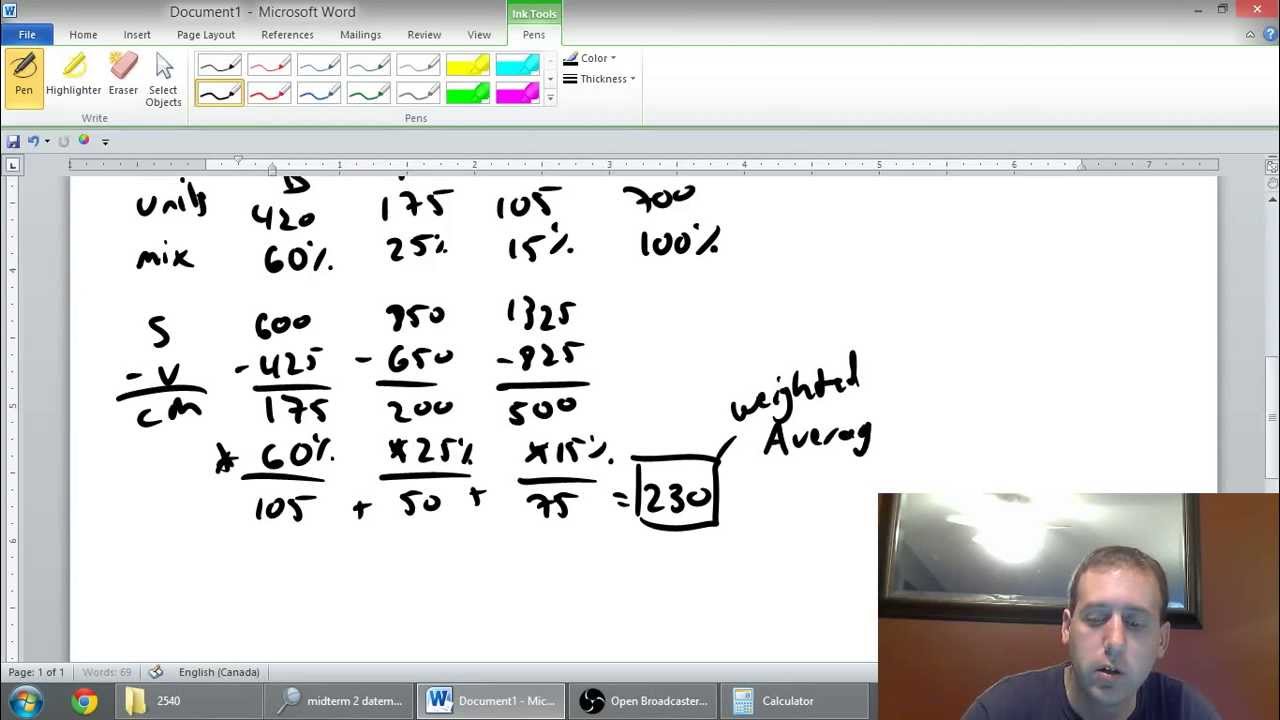 Document1 - Microsoft Word
Ink Tools
File Home Insert Page Layout References Mailings Review View Pens
Pen Highlighter Eraser Select Objects
Color
Thickness
Write
Pens
1 1 2 3 4 5 6 7
units 420 175 105 700
mix 60% 25% 15% 100%
S 600 850 1325
- V - 425 - 650 - 825
CM 175 200 500
* 60% * 25% * 15%
105 + 50 + 75 = 230
weighted
Averag
Page: 1 of 1 Words: 69 English (Canada)
2540 midterm 2 datem... Document1 - Mic... Open Broadcaster... Calculator